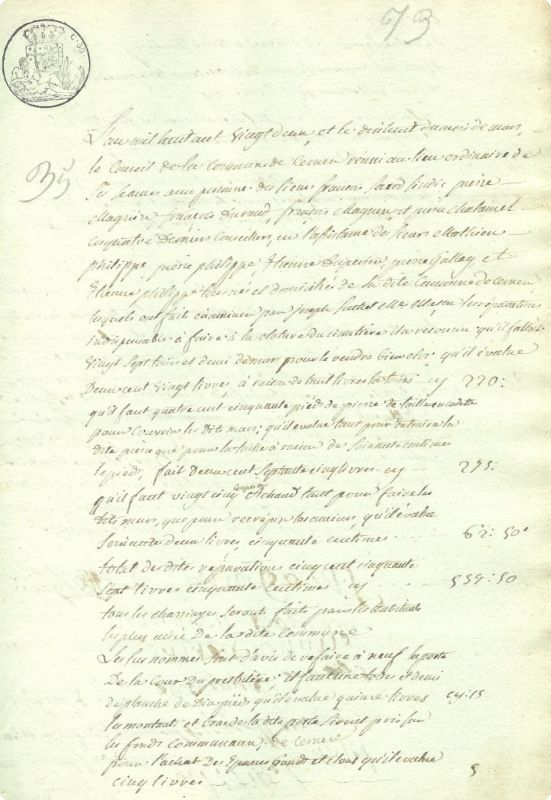 C. 50
73
35
L'an mil huit cent vingt deux, et le dix huit du mois de mars,
le Conseil de la Commune de Cernex réuni au lieu ordinaire de
ses séances aux personnes des sieurs françois Sindic, pierre
Magnin, françois Duvaud, françois Magnin et pierre
ces quatre derniers Conseillers, en l'assistance de sieurs Mathieu
philippe, pierre philippe, Etienne pierre Gallay et
Etienne philippe tous nés et domiciliés de la dite Commune de Cernex,
lesquels ont fait examiner par joseph les réparations
indispensables à faire à la cloture du cimetière il a reconnu qu'il falloit
vingt sept toises et demi de mur pour le rendre bien clos, qu'il évalue
Deux cent vingt livres, à raison de huit livres la toise cy 220:
qu'il faut quatre cent cinquante pieds de pierre de taille en cadette
pour couvrir les dits murs; qu'il évalue tant pour extraire la
dite pierre que pour la taille à raison de soixante centimes
le pied, fait Deux cent septante cinq livres cy 275:
qu'il faut vingt cinq coupes de chaud tant pour faire les
dits murs, que pour recrépir les anciens, qu'il évalue
soixante deux livres cinquante centimes 62: 50
total de dites réparations cinq cent cinquante
sept livres cinquante centimes cy 557: 50
tous les charriages seront faits par les habitants
les plus aisés de la dite commune
Les sus nommés sont d'avis de refaire à neuf la porte
De la Cour du presbitère il faut une toise et demi
de planche de dix pieds qu'il évalue quinze livres cy: 15
les montants et bras de la dite porte seront pris sur
les fonds communaux de Cernex
pour l'achat des Epares gonds et clous qu'il évalue
cinq livres 5